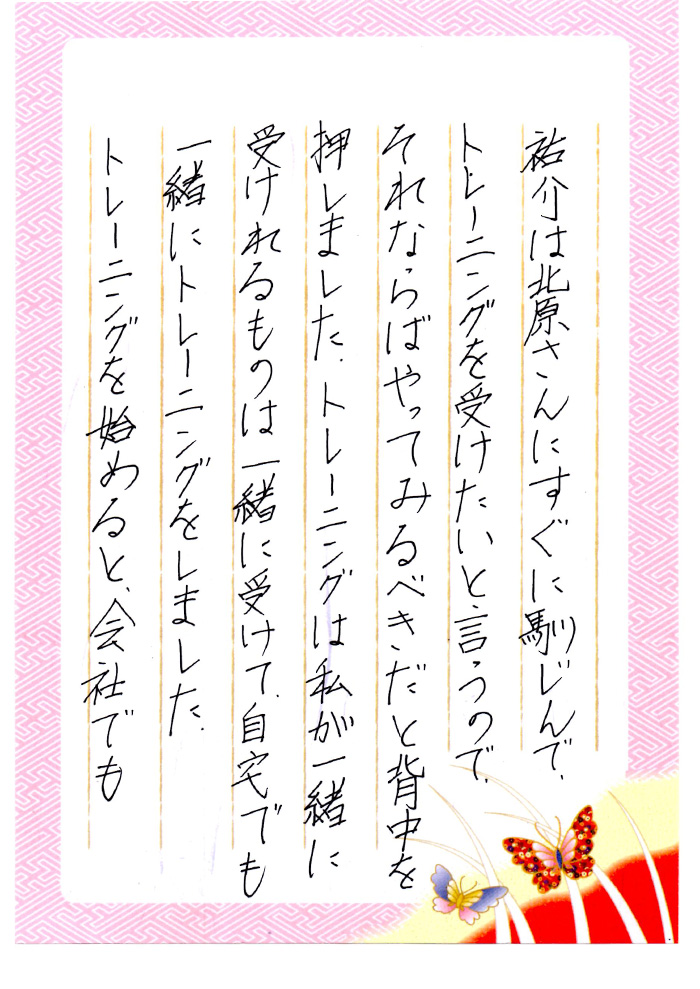 祐介は北原さんにすぐに馴じんで、
トレーニングを受けたいと言うので、
それならばやってみるべきだと背中を
押しました。トレーニングは私が一緒に
受けれるものは一緒に受けて、自宅でも
一緒にトレーニングをしました。
トレーニングを始めると、会社でも